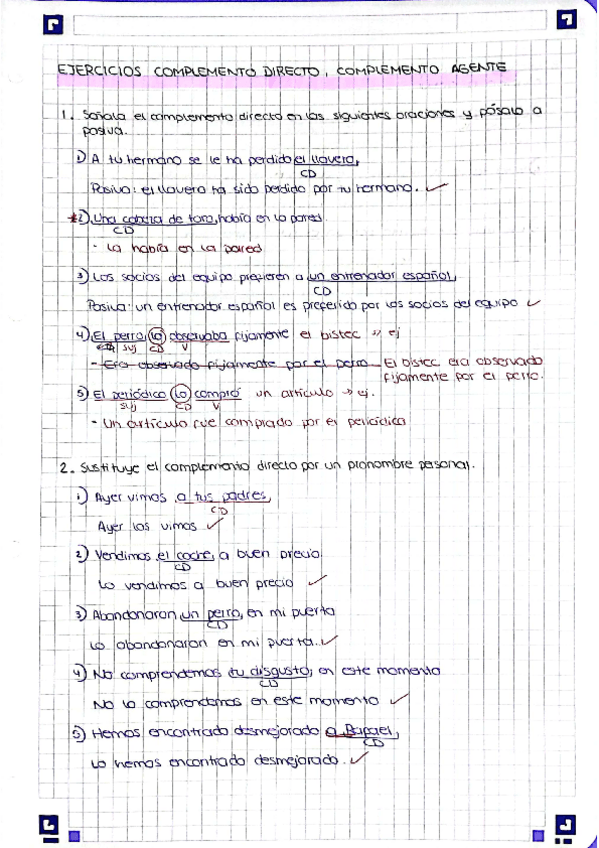 EJERCICIOS COMPLEMENTO DIRECTO, COMPLEMENTO AGENTE
1. Señala el complemento directo en las siguientes oraciones y pásalo a
pasiva.
1) A tu hermano se le ha perdido el llavero.
CD
Pasiva: el llavero ha sido perdido por tu hermano. ✓
*2) Una cabeza de toro, había en la pared
CD
- La había en la pared
3) Los socios del equipo prefieren a un entrenador español.
CD
Pasiva: un entrenador español es preferido por los socios del equipo ✓
4) El perro lo observaba fijamente el bistec » ej
Suj CD V
- Era observado fijamente por el perro El bistec era observado
fijamente por el perro.
5) El periódico lo compró un artículo → ej.
Suj CD V
- Un artículo fue comprado por el periódico
2. Sustituye el complemento directo por un pronombre personal.
1) Ayer vimos a tus padres,
CD
Ayer los vimos ✓
2) Vendimos el coche, a buen precio
CD
Lo vendimos a buen precio ✓
3) Abandonaron un perro, en mi puerta
CD
Lo abandonaron en mi puerta. ✓
4) No comprendemos tu disgusto, en este momento
CD
No lo comprendemos en este momento ✓
5) Hemos encontrado desmejorado a Rafael,
CD
Lo hemos encontrado desmejorado. ✓